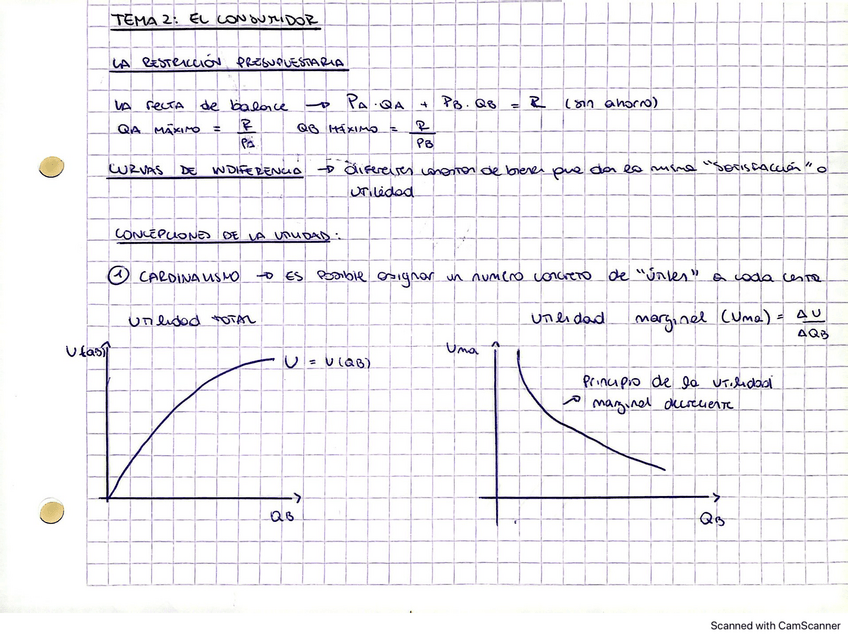 TEMA 2: EL CONSUMIDOR
LA RESTRICCIÓN PRESUPUESTARIA
LA RECTA de balance → PA·QA + PB·QB = R (sin ahorro)
QA MÁXIMO = R/PA QB MÁXIMO = R/PB
CURVAS DE INDIFERENCIA → diferentes conjuntos de bienes que dan la misma "SATISFACCIÓN" o
utilidad
CONCEPCIONES DE LA UTILIDAD:
① CARDINALISMO → ES posible asignar un número concreto de "útiles" a cada cesta
Utilidad TOTAL
Utilidad marginal (Uma) = ΔU/ΔQB
U(QB)
U = U(QB)
Uma
Principio de la utilidad
marginal decreciente
QB
QB
Scanned with CamScanner